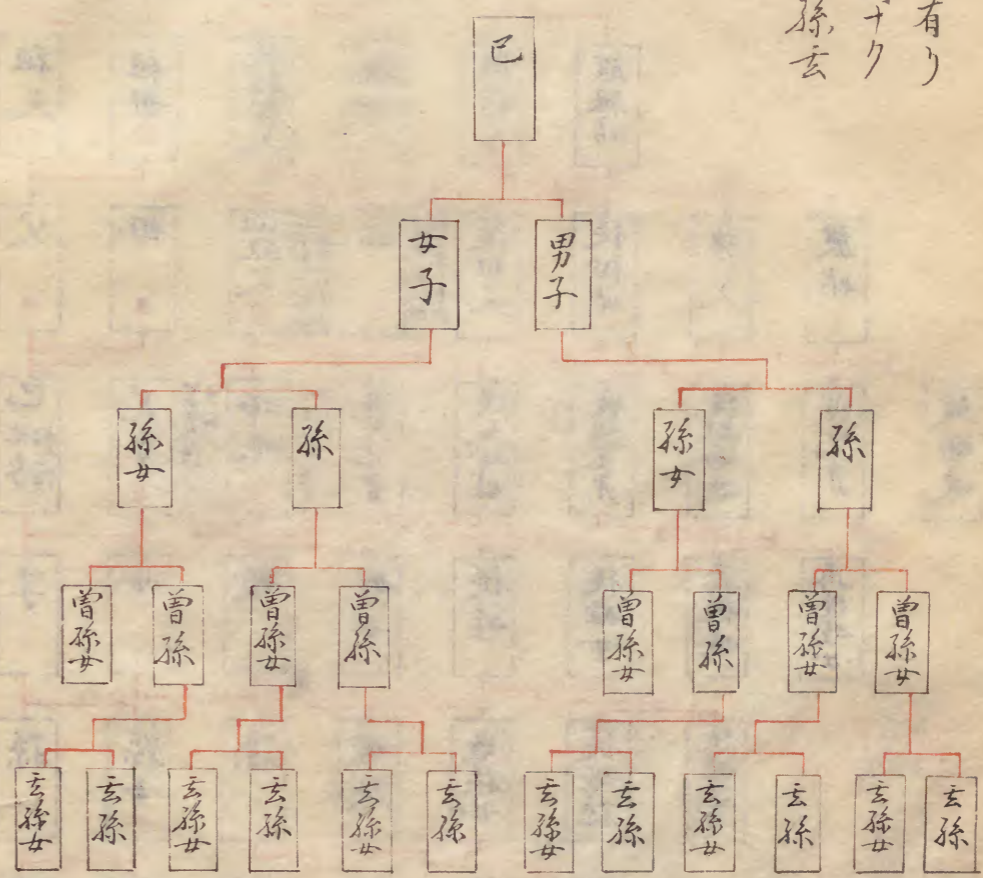 有り
ナク
孫玄
己
男子
女子
孫
孫女
孫
孫女
曽孫女
曽孫女
曽孫
曽孫女
曽孫
曽孫女
曽孫
曽孫女
玄孫
玄孫女
玄孫
玄孫女
玄孫
玄孫女
玄孫
玄孫女
玄孫
玄孫女
玄孫
玄孫女